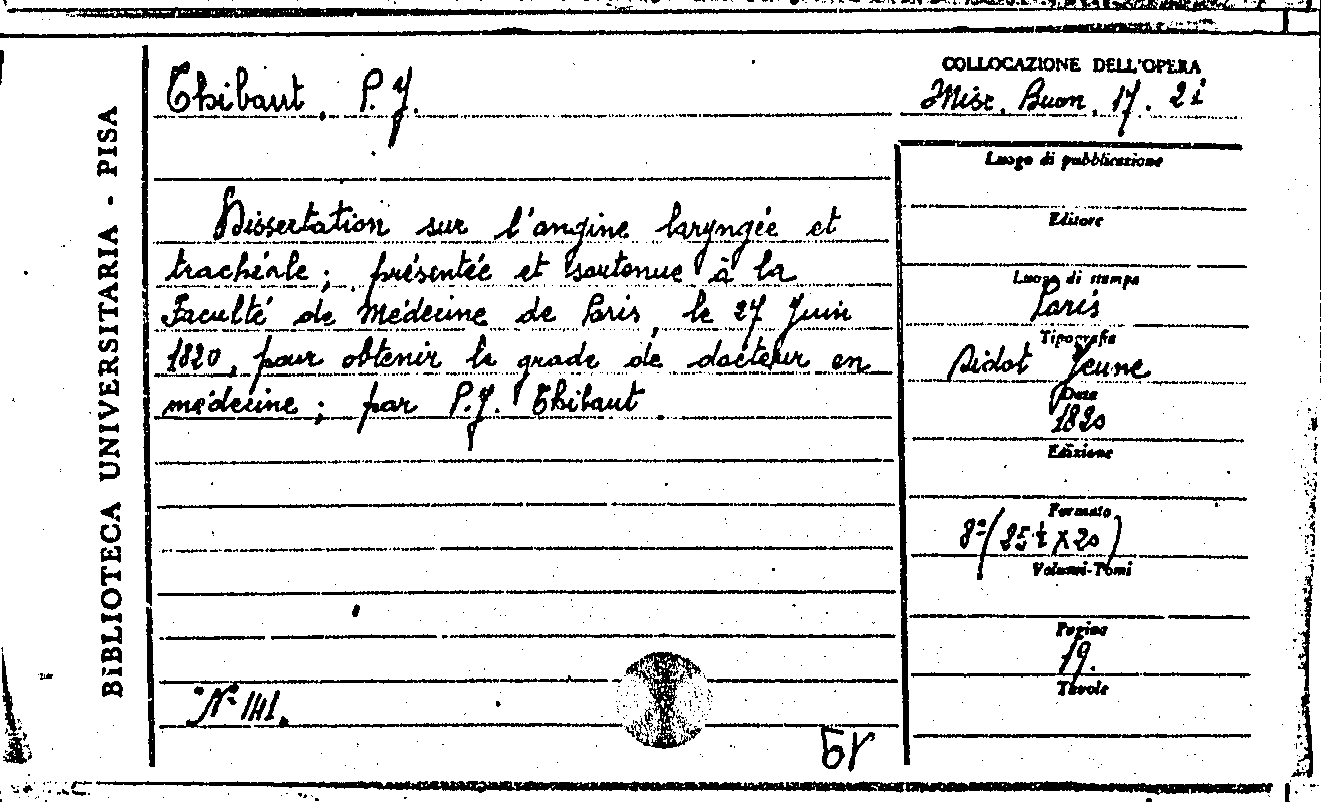 BIBLIOTECA UNIVERSITARIA - PISA
Thibaut, P. J.
COLLOCAZIONE DELL'OPERA
Misc. Buon. 17. 21
Dissertation sur l'angine laryngée et
trachéale; présentée et soutenue à la
Faculté de Médecine de Paris, le 27 Juin
1820, pour obtenir le grade de docteur en
médecine; par P. J. Thibaut.
N° 141.
Luogo di pubblicazione
Editore
Luogo di stampa
Paris
Tipografia
Didot Jeune
Data
1820
Edizione
Formato
8°(25½ x 20)
Volumi-Tomi
Pagine
19.
Tavole